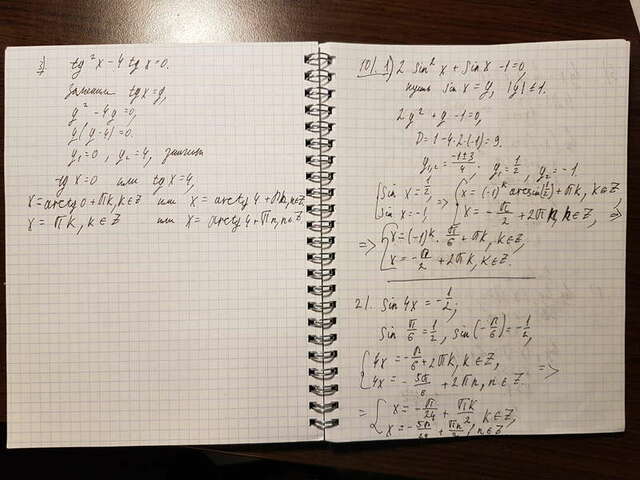 3) tg²x - 4 tg x = 0.
Заменим tg x = y,
y² - 4y = 0,
y(y-4) = 0.
y₁ = 0, y₂ = 4, значит
tg x = 0 или tg x = 4,
x = arctg 0 + πk, k ∈ Z или x = arctg 4 + πk, n ∈ Z
x = πk, k ∈ Z или x = arctg 4 + πn, n ∈ Z.
10). 1) 2 sin² x + sin x - 1 = 0,
пусть sin x = y, |y| ≤ 1.
2y² + y - 1 = 0,
D = 1 - 4·2·(-1) = 9.
y₁,₂ = (-1±3)/4; y₁ = 1/2, y₂ = -1.
[sin x = 1/2, => [x = (-1)ᵏ arcsin(1/2) + πk, k ∈ Z,
[sin x = -1, [x = -π/2 + 2πk, k ∈ Z, =>
=> [x = (-1)ᵏ · π/6 + πk, k ∈ Z,
[x = -π/2 + 2πk, k ∈ Z.
2). sin 4x = -1/2;
sin π/6 = 1/2, sin(-π/6) = -1/2,
[4x = -π/6 + 2πk, k ∈ Z, =>
[4x = -5π/6 + 2πn, n ∈ Z.
= [x = -π/24 + πk/2, k ∈ Z,
[x = -5π/24 + πn/2, n ∈ Z